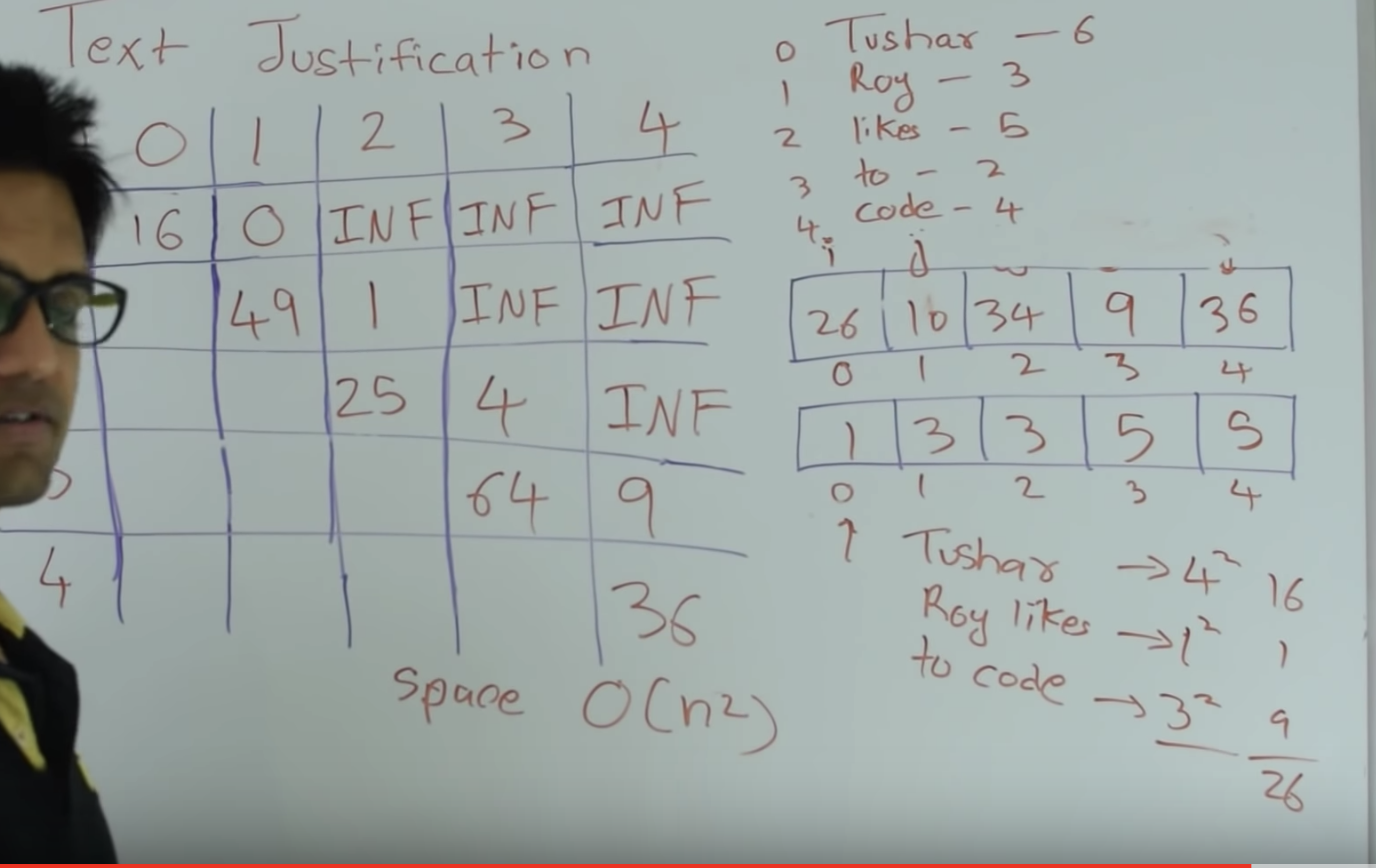 Text Justification
0 1 2 3 4
16 0 INF INF INF
49 1 INF INF
25 4 INF
64 9
4 36
Space O(n²)
0 Tushar - 6
1 Roy - 3
2 likes - 5
3 to - 2
4 code - 4
i j
26 10 34 9 36
0 1 2 3 4
1 3 3 5 5
0 1 2 3 4
Tushar → 4² 16
Roy likes → 1² 1
to code → 3² 9
26